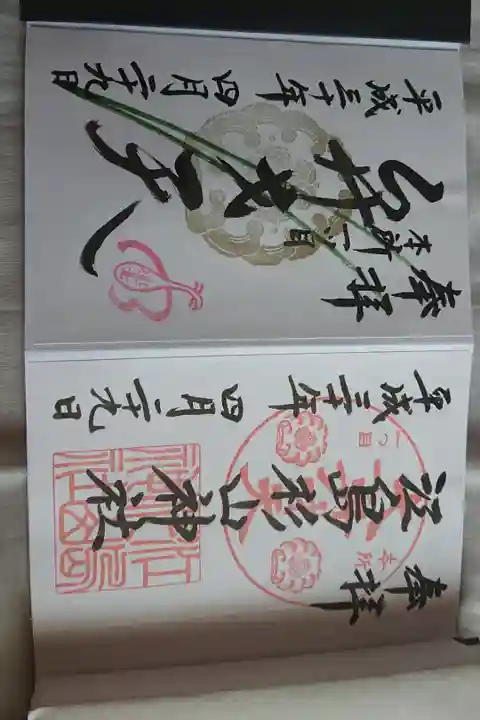 奉拝
一つ目
本所
江島杉山神社
平成三十年
四月二十九日
奉拝
本所一ツ目
平成三十年
四月二十九日